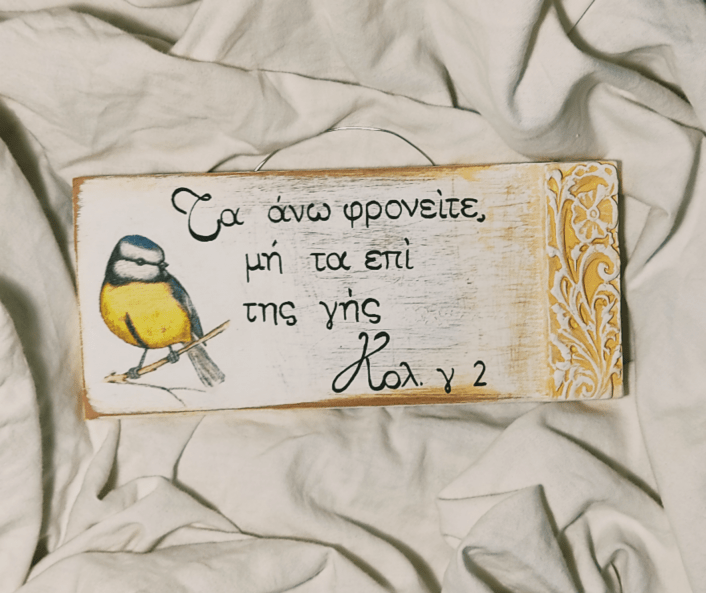 Τα άνω φρονείτε,
μή τα επί
της γής
Κολ. γ 2